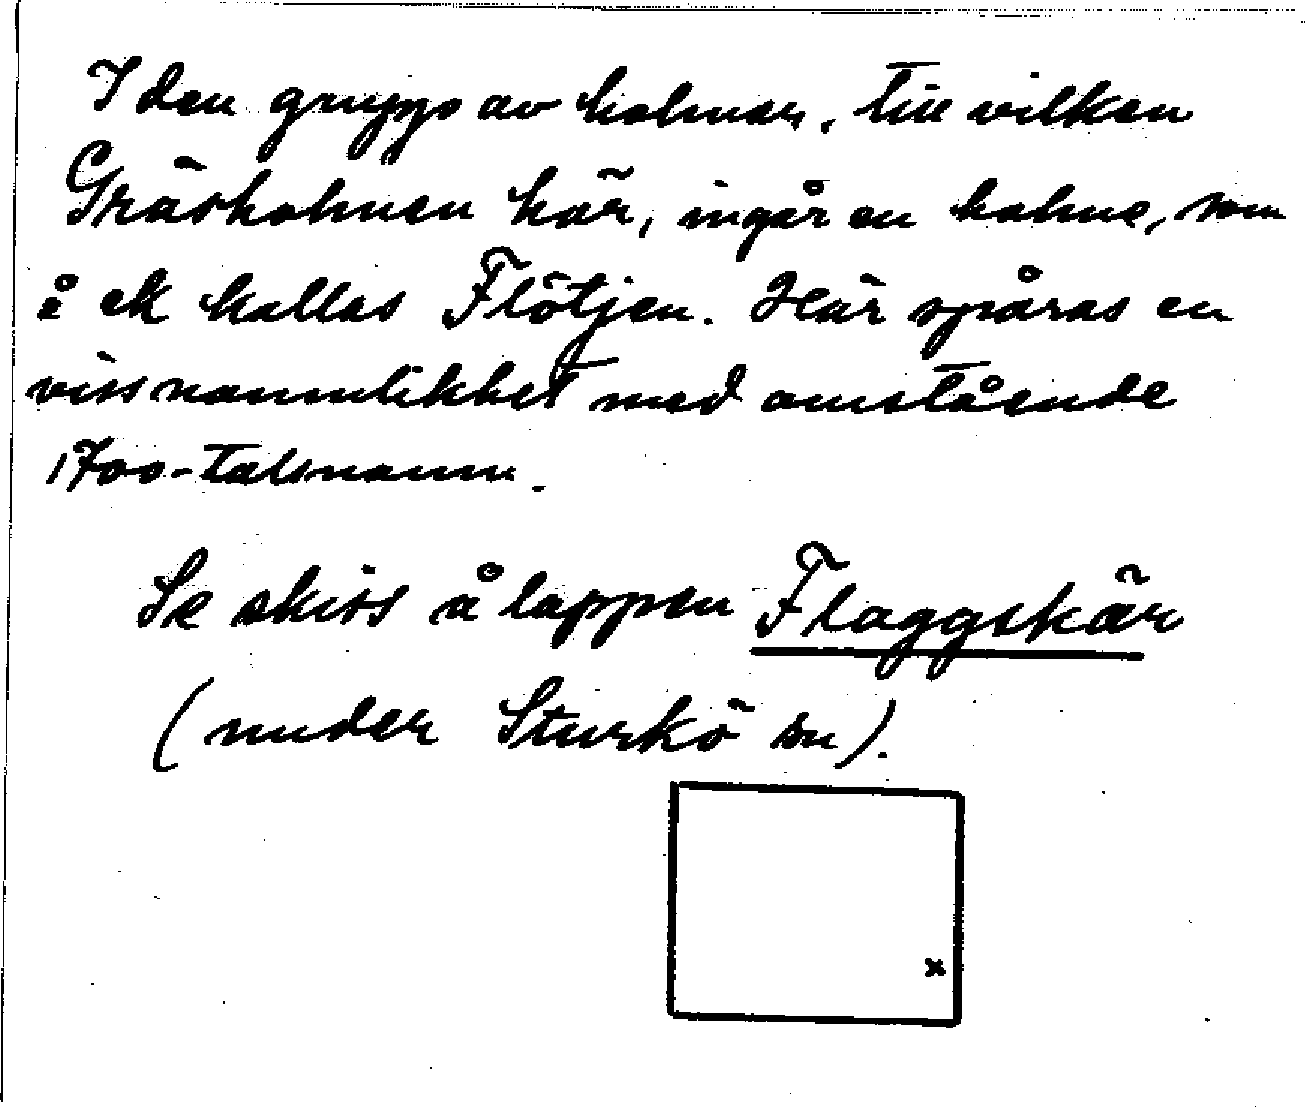 I den grupp av holmar, till vilken
Gräsholmen hör, ingår en holme, som
å ek kallas Flötjen. Här spåras en
viss namnlikhet med omstående
1700-talsnamn.
Se skiss å lappen Flaggskär
(under Sturkö sn).
x